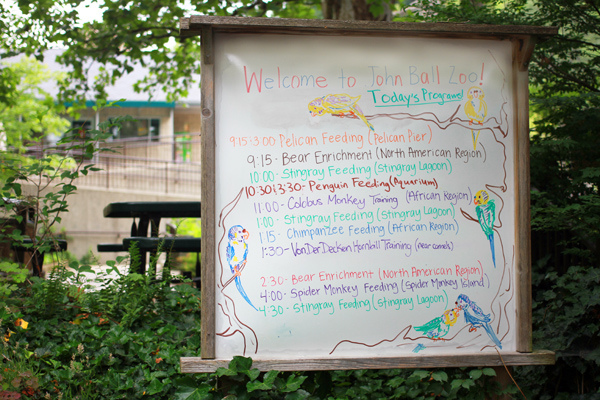 Welcome to John Ball Zoo!
Today's Programs!
9:15-3:00- Pelican Feeding (Pelican Pier)
9:15- Bear Enrichment (North American Region)
10:00- Stingray Feeding (Stingray Lagoon)
10:30&3:30- Penguin Feeding (Aquarium)
11:00- Colobus Monkey Training (African Region)
1:00- Stingray Feeding (Stingray Lagoon)
1:15- Chimpanzee Feeding (African Region)
1:30- Von Der Decken Hornbill Training (near camels)
2:30- Bear Enrichment (North American Region)
4:00- Spider Monkey Feeding (Spider Monkey Island)
4:30- Stingray Feeding (Stingray Lagoon)